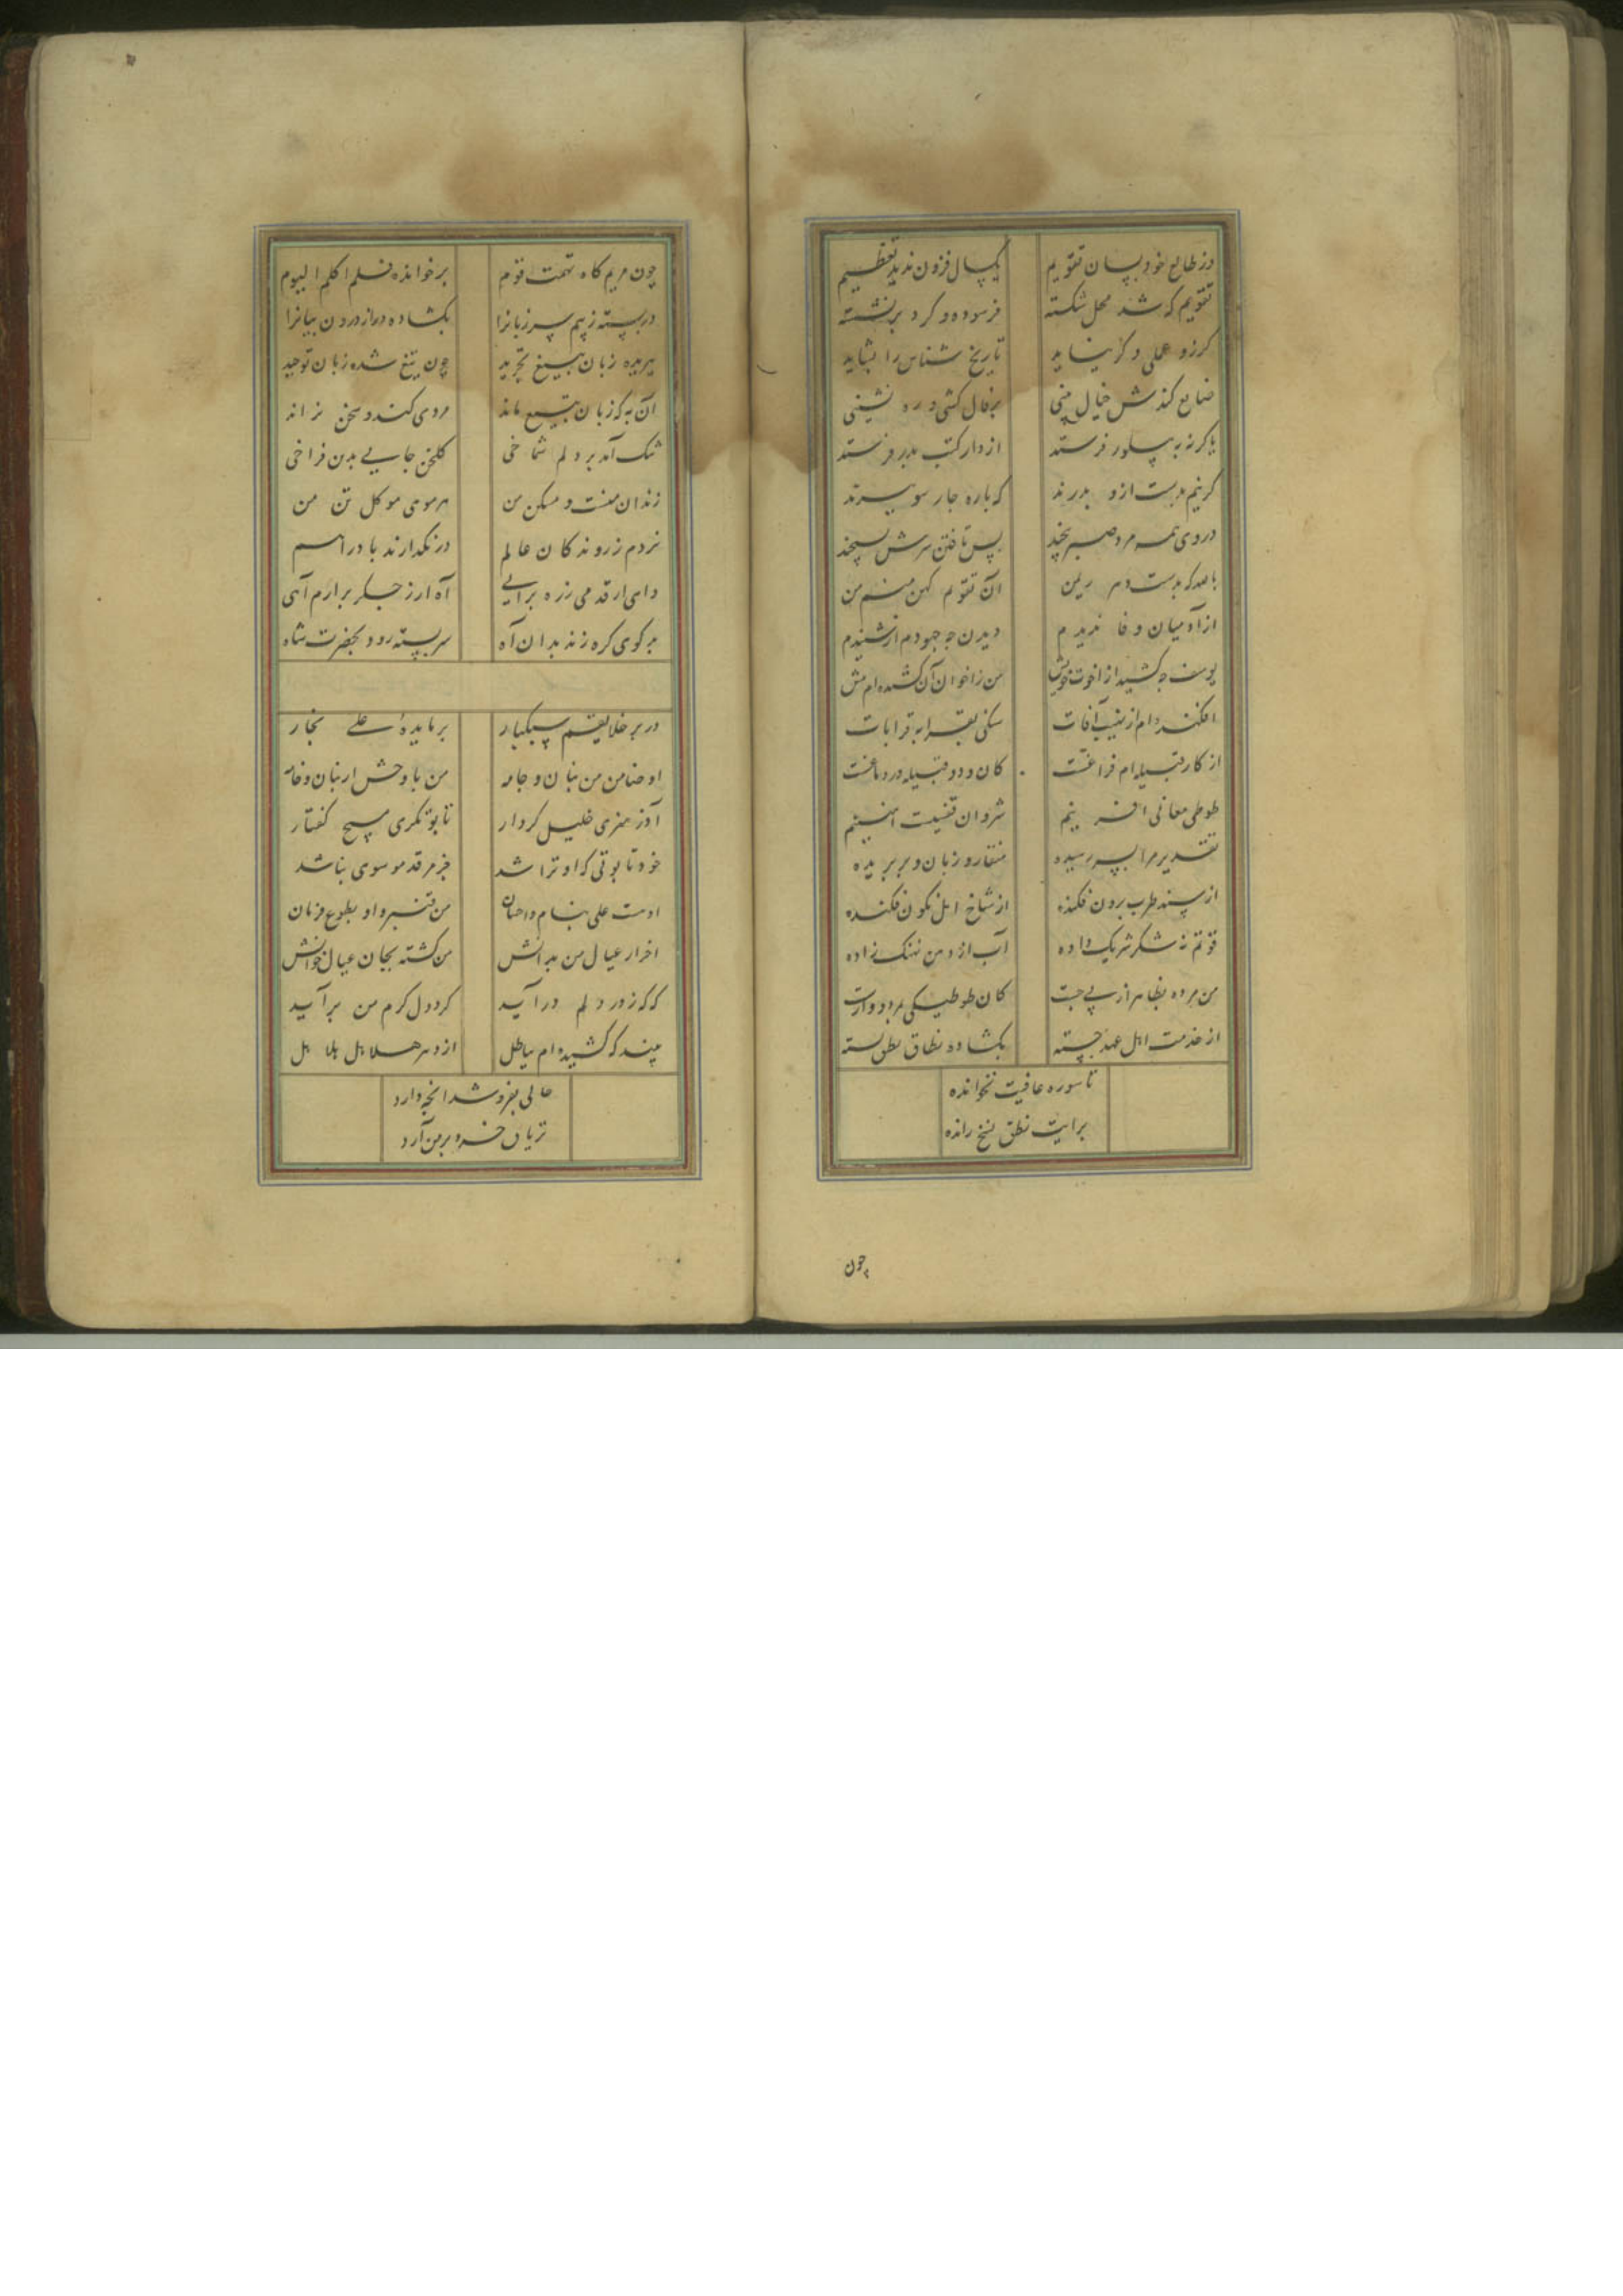 وز طالع خود بسان تقویم یکسال فزون ندید تعظیم
تقویم که شد محل شکسته فرسوده و کرد برنشسته
کرزو عملی دکر نیاید تاریخ شناس را بشاید
ضایع کنذش خیال بینی برفال کشی و ره نشینی
یا کرنه به پیلور فرستد از دار کتب بدر فرستد
کرنیم بدست ازو بدرند که باره جار سو بپرند
دروی همه مرد صبر بیخد پس تافتن سرش بپیخد
با صدکه بدست دهر ریمن آن تقویم کهن منم من
از آدمیان وفا ندیدم دیدن جه جه بودم ار شنیدم
یوسف جه کشید از اخوت خویش من زاخوان آن کشیده ام بیش
افکنده ام از نهیب آفات سکنی بقرابه قرابات
از کار قبیله ام فراغست کان دود قبیله در دماغست
طوطی معانی آفرینم شروان قفسیست آهنینم
تقدیر مرا بپر رسیده منقار و زبان و پر بریده
از پسند طرب برون فکنده از شاخ امل نکون فکنده
قوتم نه شکر شرنک داده آب از دهن نهنک زاده
من مرده بظاهر از پی جست کان طوطیکی بمرد و وارست
از خدمت اهل عهد جسته بکشاده نطاق نطق بسته
تا سوره عافیت نخوانده
برایت نطق نسخ رانده
چون
چون مریم کاه تهمت قوم برخوانده فلن اکلم الیوم
دربسته ز بیم سر زبانرا بکشاده در از درون بیانرا
ببریده زبان بتیغ تجرید چون تیغ شده زبان توحید
آن به که زبان بتیغ ماند مردی کند و سخن نراند
تنک آمد بر دلم شماخی کلخن جایی بدین فراخی
زندان منست و مسکن من هر موی موکل تن من
نزدم ز روندکان عالم درنکذارند باد را هم
دای ار قدمی ز ره برآیی آه ار ز جکر برارم آهی
برکوی کره زند بدان آه سربسته رود بحضرت شاه
در بر خلایقم سبکبار بر مایده علی نجار
او ضامن من بنان و جامه من با وحش ار بنان و خامه
آزر هنری خلیل کردار تابوت کری مسیح کفتار
خود تابوتی که او تراشد جز مرقد موسوی نباشد
اوست علی بنام و احسان من قنبر او بطوع فرمان
احرار عیال من بدانش من کشته بجان عیال خوانش
که که ز در دلم درآید کرد دل کرم من برآید
چندکه کشیده ام بباطل از دهر هلاهل بلا هل
حالی بفروشد انچه دارد
تریاق خرد بر من آرد